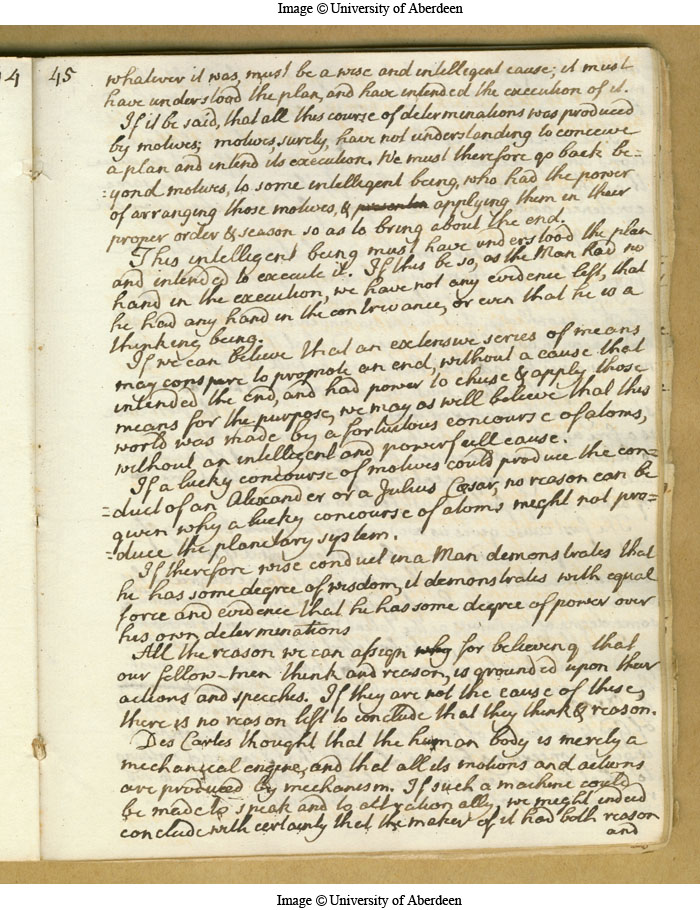 Image © University of Aberdeen
14
45
whatever it was, must be a wise and intelligent cause; it must
have understood the plan, and have intended the execution of it.
If it be said, that all this course of determinations was produced
by motives; motives, surely, have not understanding to conceive
a plan and intend its execution. We must therefore go back be-
=yond motives, to some intelligent being, who had the power
of arranging those motives, & applying them in their
proper order & season so as to bring about the end.
This intelligent being must have understood the plan
and intended to execute it. If this be so, as the Man had no
hand in the execution, we have not any evidence left, that
he had any hand in the contrivance, or even that he is a
thinking being.
If we can believe that an extensive series of means
may conspire to promote an end, without a cause that
intended the end, and had power to chuse & apply those
means for the purpose, we may as well believe that this
world was made by a fortuitous concourse of atoms,
without an intelligent and powerfull cause.
If a lucky concourse of motives could produce the con=
=duct of an Alexander or a Julius Cæsar, no reason can be
given why a lucky concourse of atoms might not pro=
=duce the planetary system.
If therefore wise conduct in a Man demonstrates that
he has some degree of wisdom, it demonstrates with equal
force and evidence that he has some degree of power over
his own determinations
All the reason we can assign why for believing that
our fellow-men think and reason, is grounded upon their
actions and speeches. If they are not the cause of these,
there is no reason left to conclude that they think & reason.
Des Cartes thought that the human body is merely a
mechanical engine, and that all its motions and actions
are produced by mechanism. If such a machine could
be made to speak and to act rationally, we might indeed
conclude with certainty that the maker of it had both reason
and
Image © University of Aberdeen